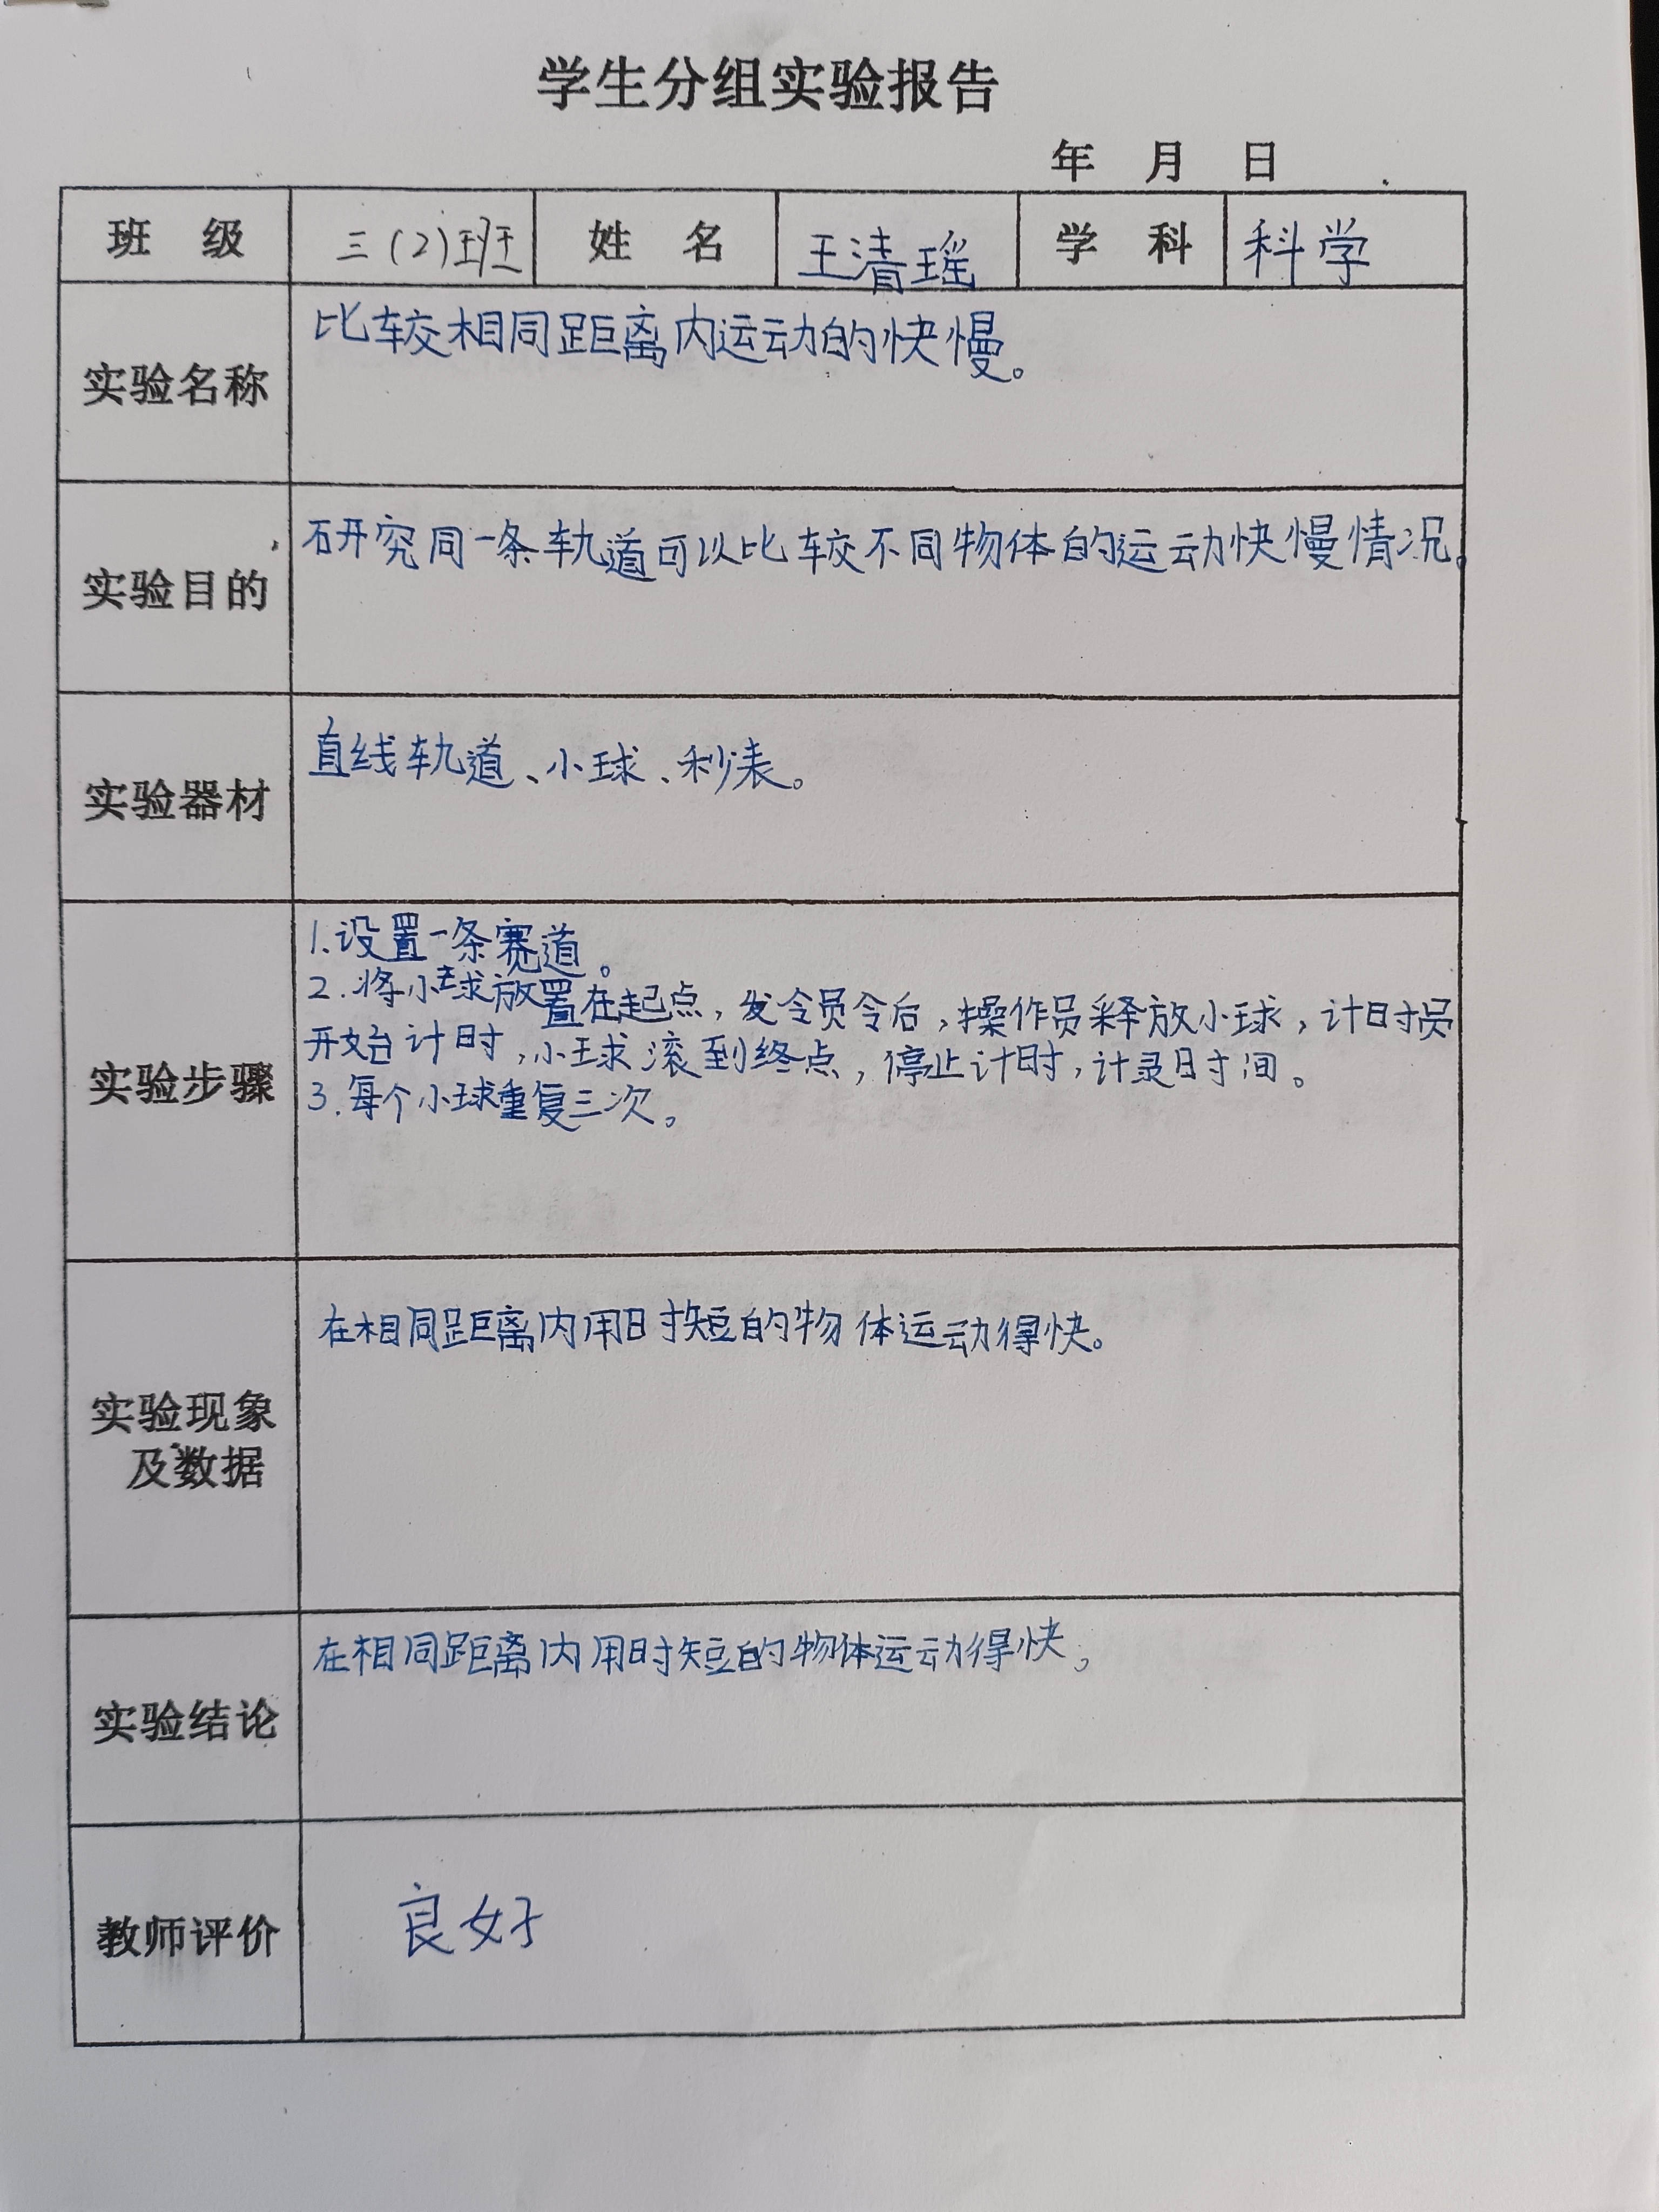 学生分组实验报告
年 月 日
班 级 三(2)班 姓 名 王清瑶 学 科 科学
实验名称 比较相同距离内运动的快慢。
实验目的 研究同一条轨道可以比较不同物体的运动快慢情况。
实验器材 直线轨道、小球、秒表。
实验步骤
1.设置一条赛道。
2.将小球放置在起点,发令员令后,操作员释放小球,计时员
开始计时,小球滚到终点,停止计时,计录时间。
3.每个小球重复三次。
实验现象
及数据
在相同距离内用时短的物体运动得快。
实验结论 在相同距离内用时短的物体运动得快。
教师评价 良好